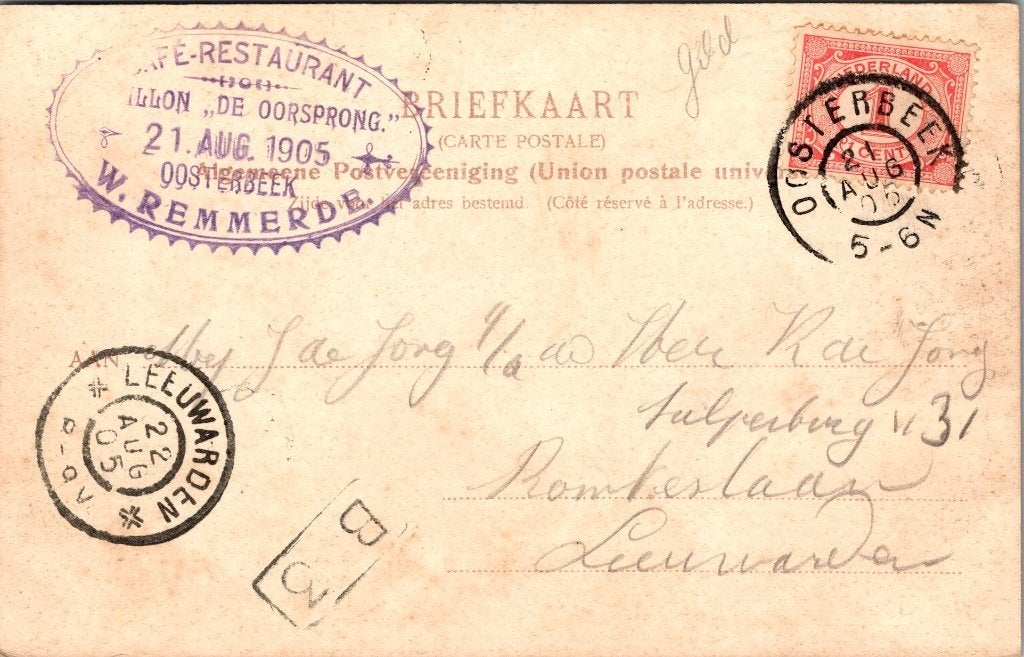 CAFÉ-RESTAURANT
ILLON „DE OORSPRONG."
21. AUG. 1905
OOSTERBEEK
W. REMMERDE
gold
BRIEFKAART
(CARTE POSTALE)
Algemeene Postvereeniging (Union postale univer
Zijde voor het adres bestemd. (Côté réservé à l'adresse.)
NEDERLAND
1
CENT
OOSTERBEEK
21
AUG
05
5-6N
AAN Mej J de Jong p/a de Heer K de Jong
31
Leeuwarden
LEEUWARDEN
22
AUG
05
8-9V
B 3